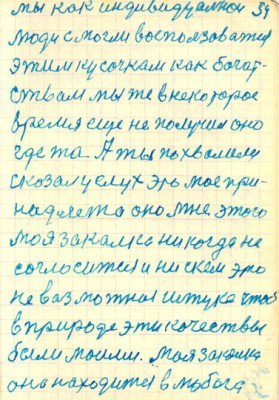 мы как индивидуалной 34
люди смогли воспользоватся
этим кусочкам как богат-
ствам мы те в некоторое
время еще не получил оно
где та. А ты похвалили
сказал у слух это мое при-
надлежа оно мне. этого
моя закалка никогда не
согласится и ни скем это
не возможная штука чтоб
в природе эти качествы
были моими. моя закалка
она находится в любога